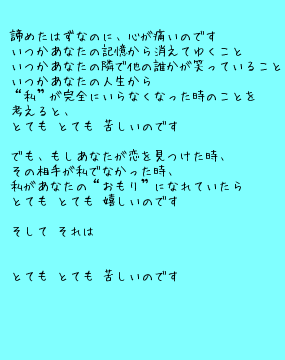 諦めたはずなのに、心が痛いのです
いつかあなたの記憶から消えてゆくこと
いつかあなたの隣で他の誰かが笑っていること
いつかあなたの人生から
“私”が完全にいらなくなった時のことを
考えると、
とても とても 苦しいのです
でも、もしあなたが恋を見つけた時、
その相手が私でなかった時、
私があなたの“おもり”になれていたら
とても とても 嬉しいのです
そして それは
とても とても 苦しいのです